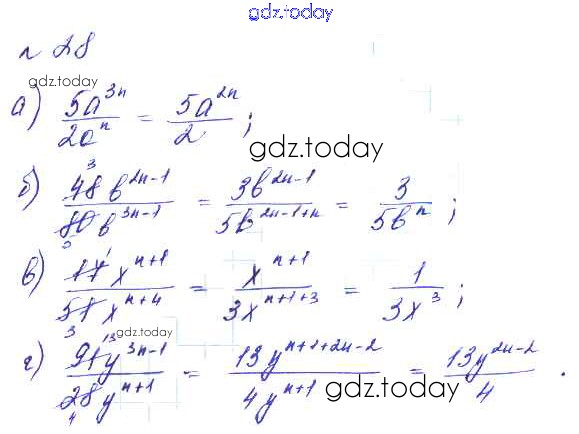 gdz.today
n 28
gdz.today
а) 5a^{3n} / 2a^{n} = 5a^{2n} / 2 ;
gdz.today
б) 48^{3} b^{2n-1} / 80_{5} b^{3n-1} = 3b^{2n-1} / 5b^{2n-1+n} = 3 / 5b^{n} ;
в) 17^{1} x^{n+1} / 51_{3} x^{n+4} = x^{n+1} / 3x^{n+1+3} = 1 / 3x^{3} ;
gdz.today
г) 91^{13} y^{3n-1} / 28_{4} y^{n+1} = 13y^{n+1+2n-2} / 4y^{n+1} = 13y^{2n-2} / 4 .
gdz.today